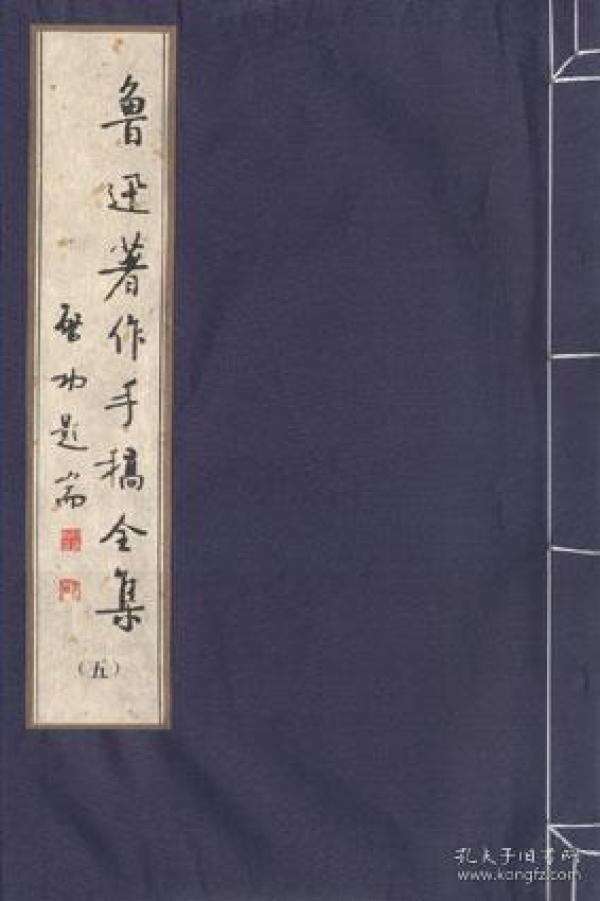 鲁迅著作手稿全集
启功题端
（五）
孔夫子旧书网
www.kongfz.com